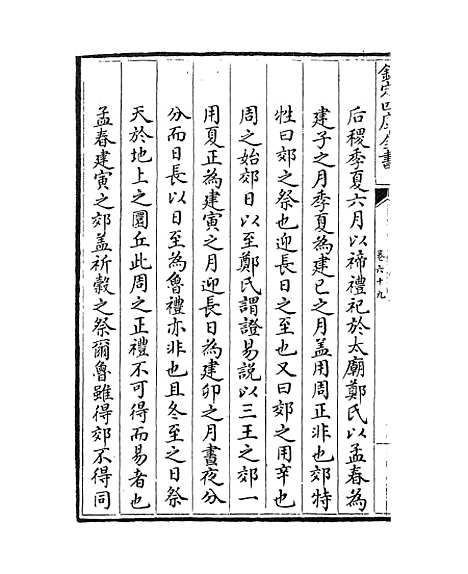 欽定四庫全書
卷六十九
后稷季夏六月以禘禮祀於太廟鄭氏以孟春為
建子之月季夏為建巳之月盖用周正非也郊特
牲曰郊之祭也迎長日之至也又曰郊之用辛也
周之始郊日以至鄭氏謂證易說以三王之郊一
用夏正為建寅之月迎長日為建卯之月晝夜分
分而日長以日至為魯禮亦非也且冬至之日祭
天於地上之圜丘此周之正禮不可得而易者也
孟春建寅之郊盖祈穀之祭爾魯雖得郊不得同